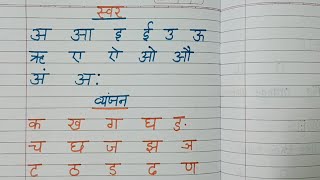 स्वर
अ आ इ ई उ ऊ
ऋ ए ऐ ओ औ
अं अः
व्यंजन
क ख ग घ ङ
च छ ज झ ञ
ट ठ ड ढ ण